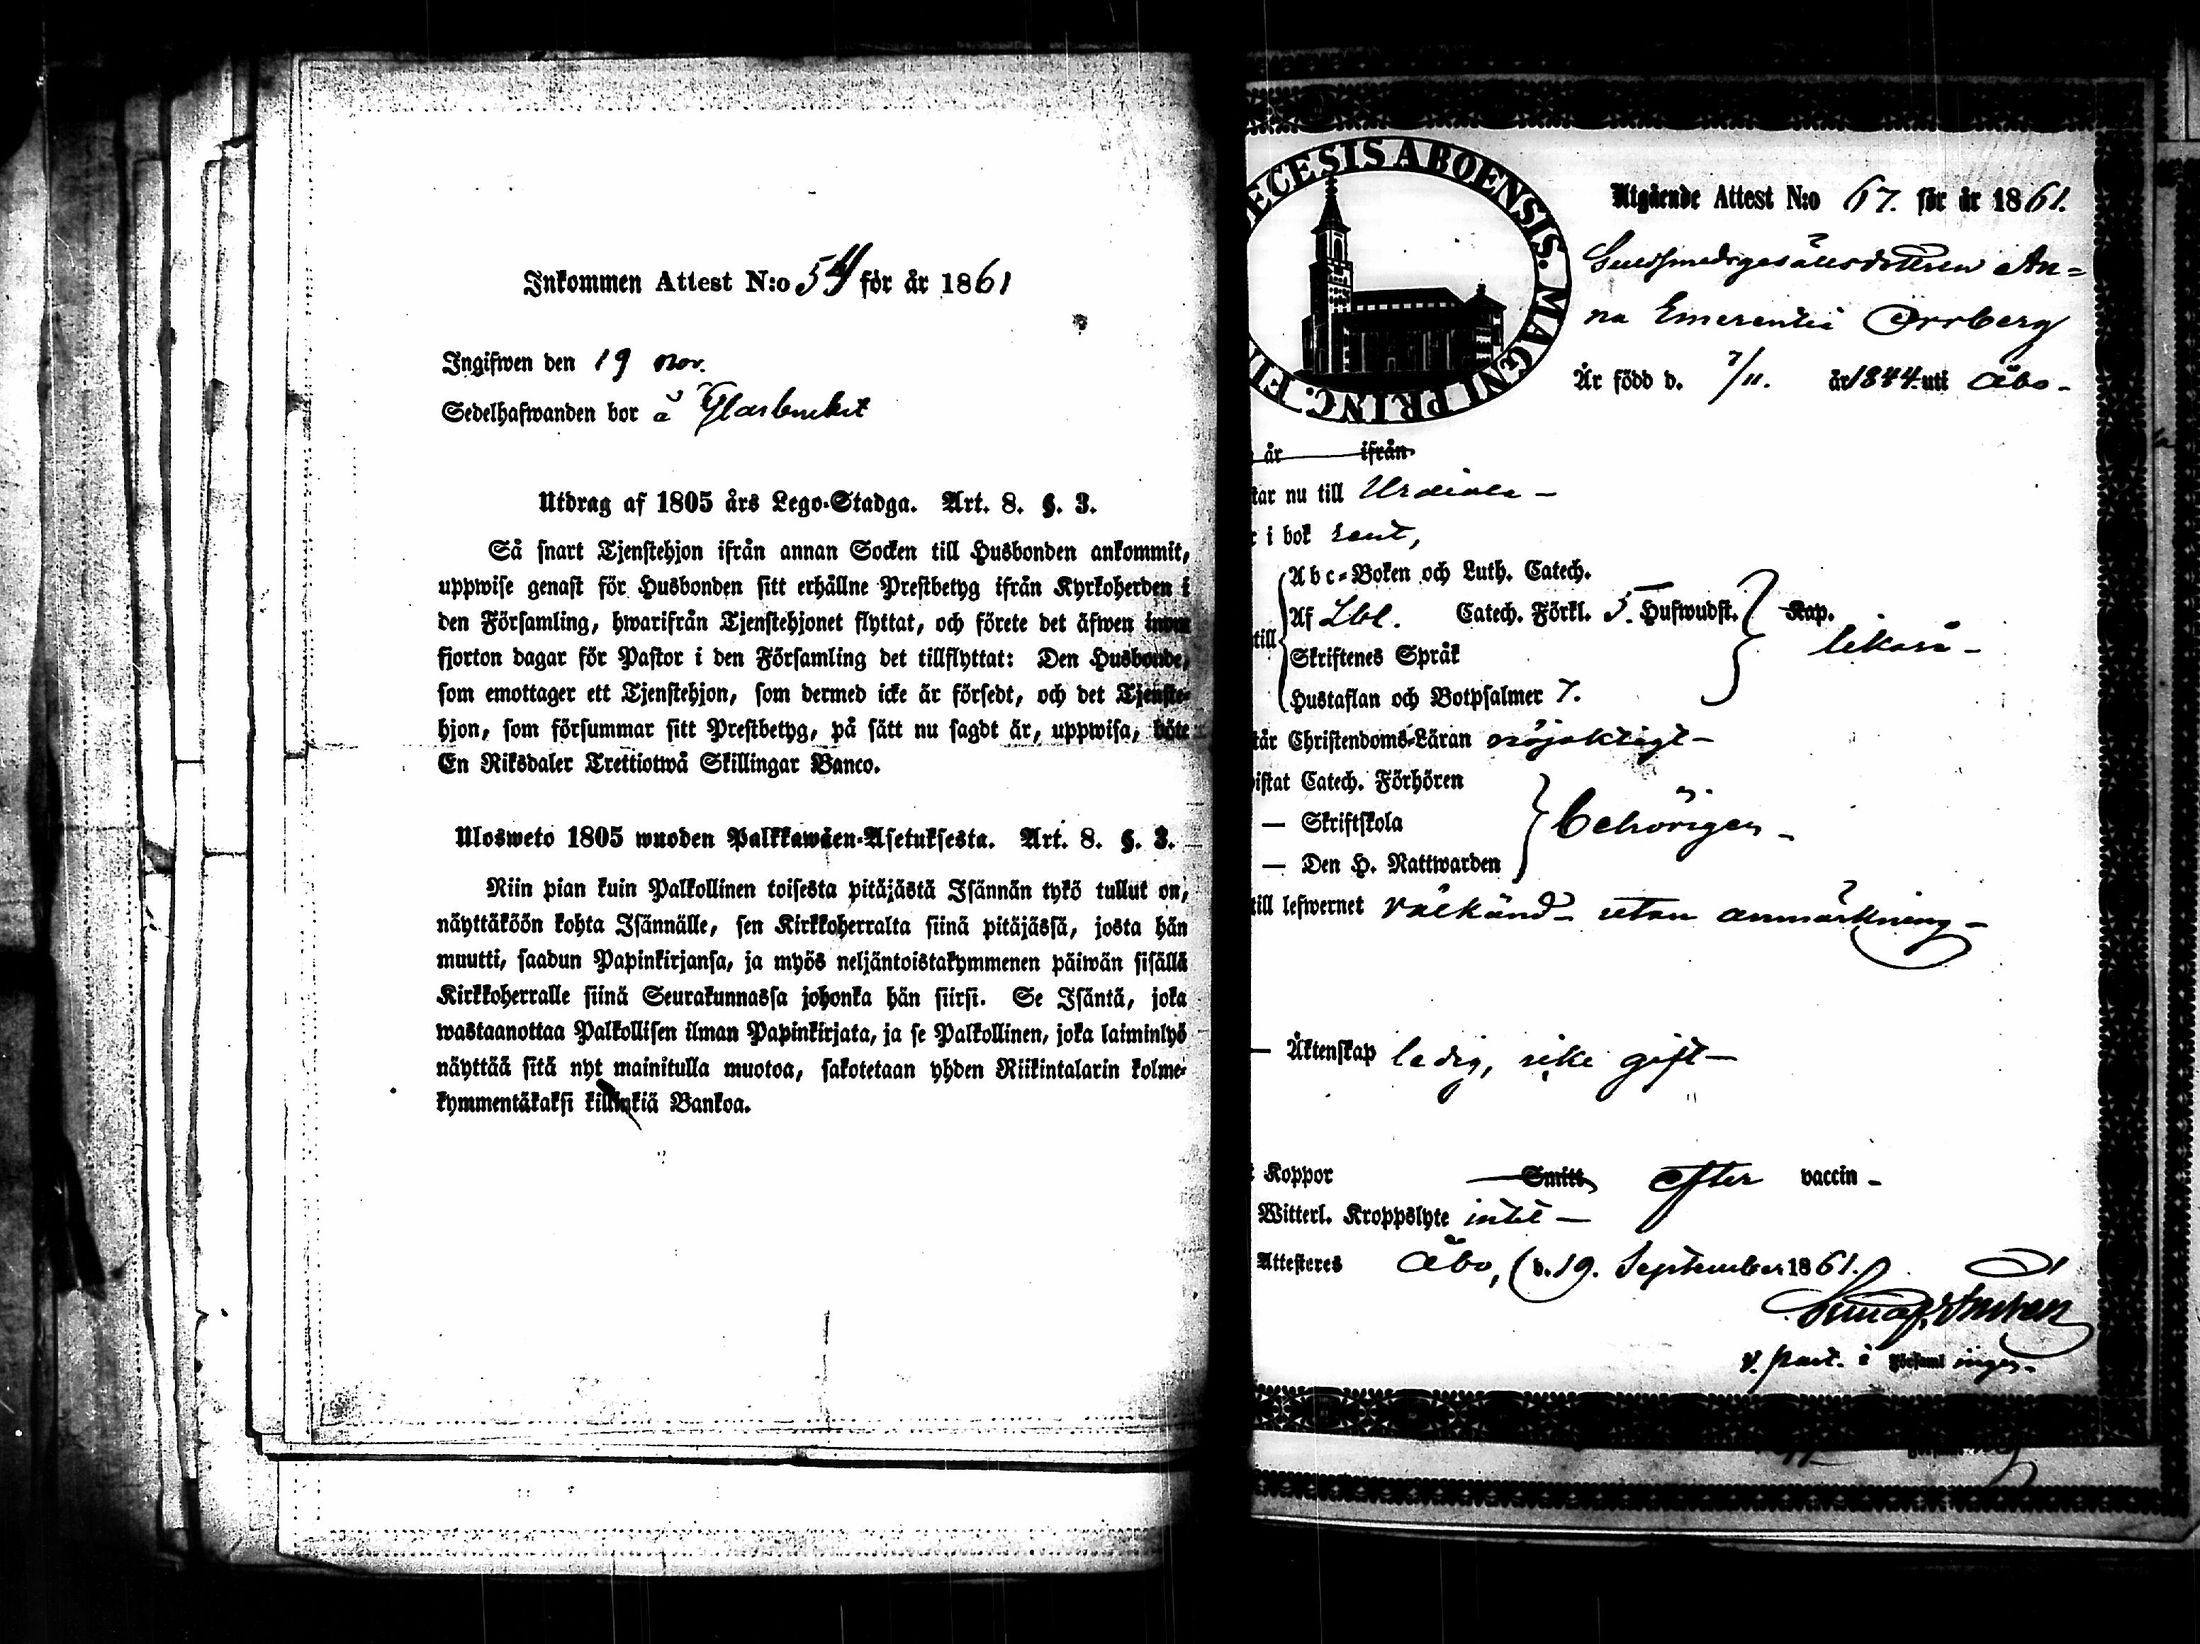 Inkommen Attest N:o 54 för år 1861
Ingifwen den 19 nov.
Sedelhafwanden bor å Glasbruket
Utdrag af 1805 års Lego-Stadga. Art. 8. §. 3.
Så snart Tjenstehjon ifrån annan Socken till Husbonden ankommit,
uppwise genast för Husbonden sitt erhållne Prestbetyg ifrån Kyrkoherden i
den Församling, hwarifrån Tjenstehjonet flyttat, och förete det äfwen inom
fjorton dagar för Pastor i den Församling det tillflyttat: Den Husbonde,
som emottager ett Tjenstehjon, som dermed icke är försedt, och det Tjenste-
hjon, som försummar sitt Prestbetyg, på sätt nu sagdt är, uppwisa, böte
En Riksdaler Trettiotwå Skillingar Banco.
Ulosweto 1805 wuoden Palkkawäen-Asetuksesta. Art. 8. §. 3.
Niin pian kuin Palkollinen toisesta pitäjästä Isännän tykö tullut on,
näyttäköön kohta Isännälle, sen Kirkkoherralta siinä pitäjässä, josta hän
muutti, saadun Papinkirjansa, ja myös neljäntoistakymmenen päiwän sisällä
Kirkkoherralle siinä Seurakunnassa johonka hän siirsi. Se Isäntä, joka
wastaanottaa Palkollisen ilman Papinkirjata, ja se Palkollinen, joka laiminlyö
näyttää sitä nyt mainitulla muotoa, sakotetaan yhden Riikintalarin kolme-
kymmentäkaksi killinkiä Bankoa.
ECESIS ABOENSIS. MAGNI PRINC. FIN
Utgående Attest N:o 67. för år 1861.
Guldsmedsgesällsdottren An-
na Emerentia Orrberg
Är född d. 7/11. år 1844. uti Åbo -
år ifrån
tar nu till Urdiala -
i bok rent,
Abc-Boken och Luth. Catech.
Af Lbl. Catech. Förkl. 5. Hufwudst. Kap.
till
likaså -
Skriftenes Språk
Hustaflan och Botpsalmer 7.
tår Christendoms-Läran nöjaktigt -
istat Catech. Förhören
— Skriftskola behörigen -
— Den H. Nattwarden
till lefwernet välkänd - utan anmärkning -
— Äktenskap ledig, icke gift -
Koppor Smitt efter vaccin -
Witterl. Kroppslyte intet -
Attesteres Åbo, d. 19. September 1861.
v. past. i Församl ingen.